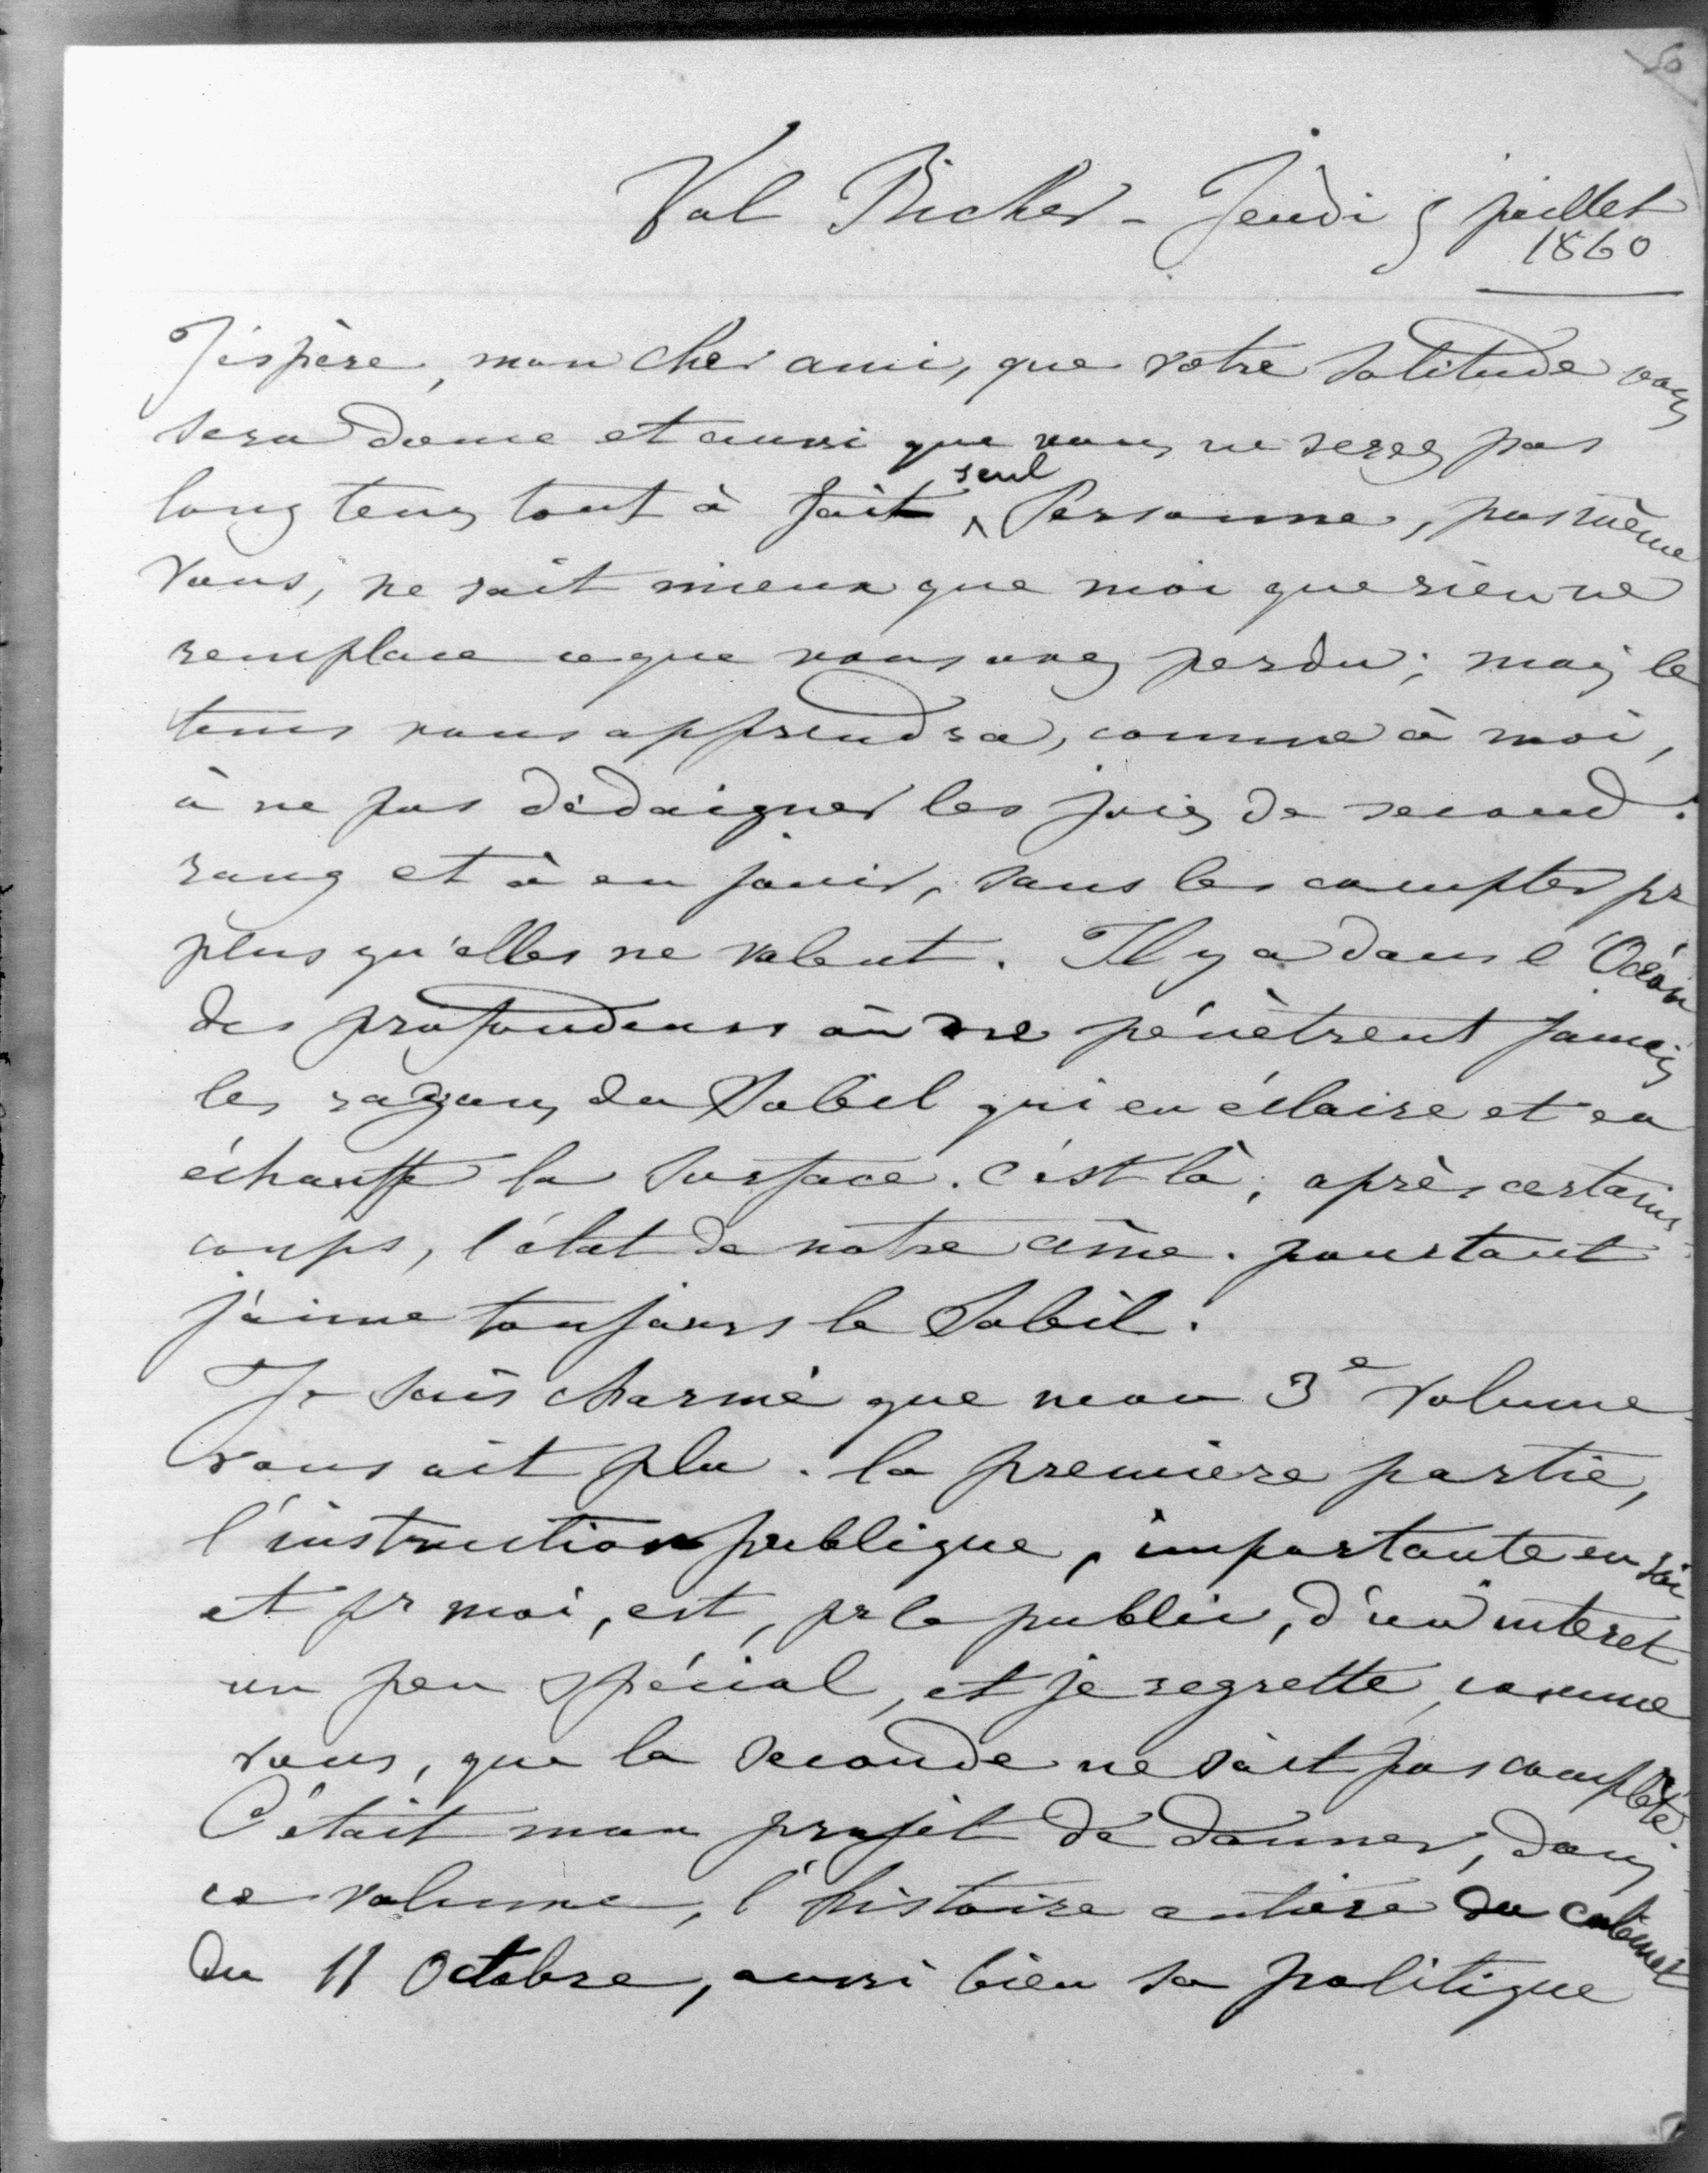 50
Val Richer - Jeudi 5 juillet
1860
J'éspère, mon cher ami, que votre solitude vous
sera douce et aussi que vous ne serez pas
long tems tout à fait seul Personne, pas même
vous, ne sait mieux que moi que rien ne
remplace ce que vous avez perdu ; mais le
tems vous apprendra, comme à moi,
à ne pas dédaigner les joies de second
rang et à en jouir, sans les compter pr
plus qu'elles ne valent. Il y a dans l'Océan
des profondeurs où ne pénètrent jamais
les rayons du Soleil qui en éclaire et en
échauffe la surface. C'est là, après certains
coups, l'état de notre âme. pourtant
j'aime toujours le Soleil.
Je suis charmé que mon 3e volume
vous ait plu. la première partie,
l'instruction publique, importante en soi
et pr moi, est, pr le public, d'un intéret
un peu spécial, et je regrette, comme
vous, que la seconde ne soit pas complète.
C'était mon projet de donner, dans
ce volume, l'histoire entière du cabinet
du 11 Octobre, aussi bien sa politique